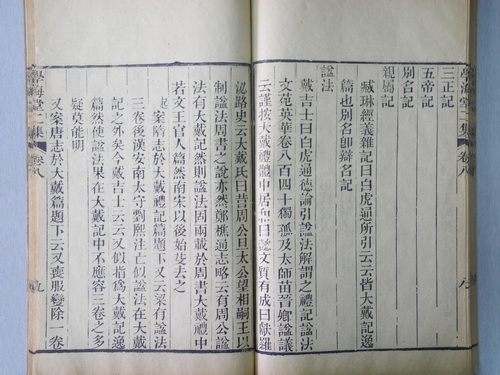 學海堂二集 卷八
三正記
五帝記
別名記
親屬記
臧琳經義雜記曰白虎通所引云云皆大戴記逸
篇也別名卽辯名記
諡法
戴吉士曰白虎通德論引諡法解謂之禮記諡法
文苑英華卷八百四十獨孤及太師苗晉卿諡議
云謹按大戴禮體中居和曰懿文賢有成曰獻羅
泌路史云大戴氏曰昔周公旦太公望相嗣王以
制諡法周書之說亦然鄭樵通志略云有周公諡
法有大戴記然則諡法固兩載於周書大戴禮中
若文王官人篇然南宋以後始去之
案隋志於大戴禮記篇題下云又梁有諡法
三卷後漢安南太守劉熙注亡似諡法在大戴
記之外矣今戴吉士云云又似指爲大戴記逸
篇然使諡法果在大戴記中不應容三卷之多
疑莫能明
又案唐志於大戴篇題下云又喪服變除一卷
學海堂二集 卷八 九